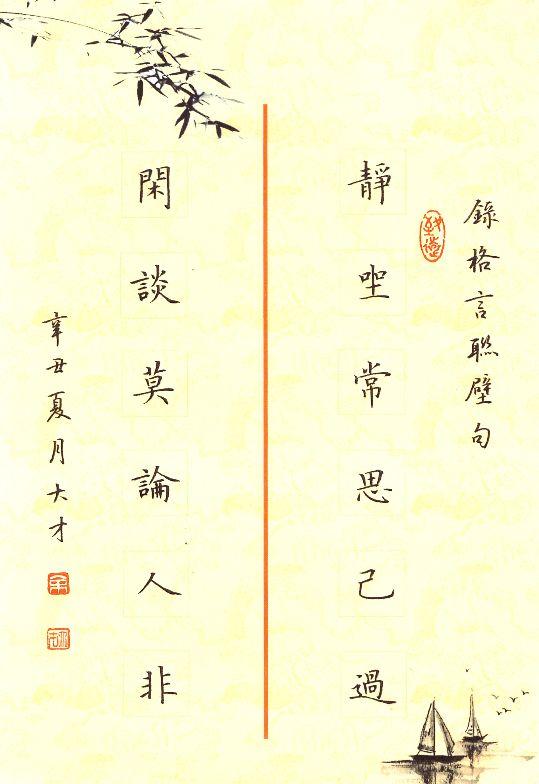 錄格言聯璧句
靜坐常思己過
閑談莫論人非
辛丑夏月大才